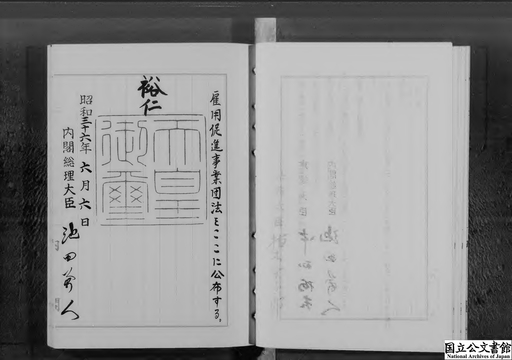 雇用促進事業団法をここに公布する。
裕仁
天皇
御璽
昭和三十六年六月六日
内閣総理大臣 池田勇人
国立公文書館
National Archives of Japan